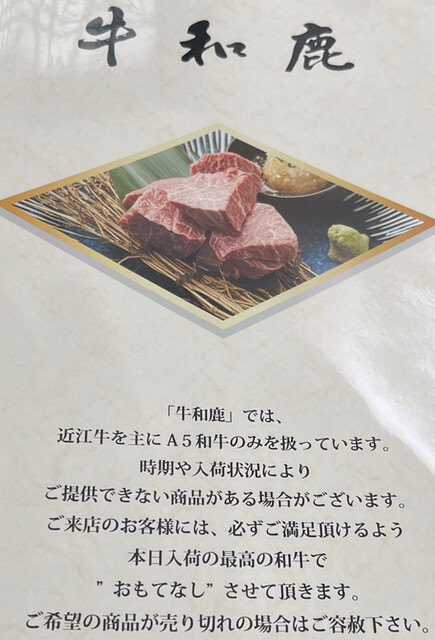 牛和鹿
「牛和鹿」では、
近江牛を主にA5和牛のみを扱っています。
時期や入荷状況により
ご提供できない商品がある場合がございます。
ご来店のお客様には、必ずご満足頂けるよう
本日入荷の最高の和牛で
”おもてなし”させて頂きます。
ご希望の商品が売り切れの場合はご容赦下さい。